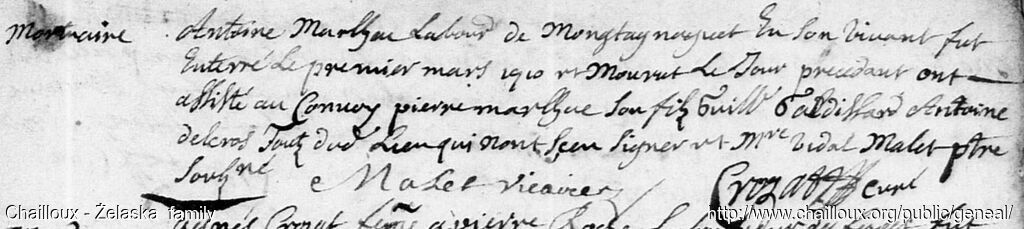 Mortuaire Antoine Marlhac Labour de Montagnaguet En Son Vivant fut
Enterré Le premier mars 1710 et Mourut Le Jour precedant ont
assisté au Convoy pierre marlhac son filz Guill
Antoine
deleros Toutz dud Lieu qui nont sceu signer et Mre Vidal Malet ptre
Soubné Malet vicaire Crozat Curé
Chailloux - Żelaska family
http://www.chailloux.org/public/geneal/